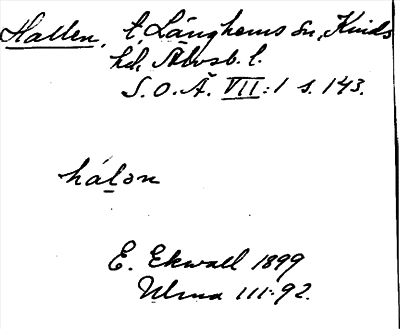 Hallen, t. Länghems sn, Kinds
hd, Älvsb. l.
S.O.Ä. VII:1 s. 143.
hálən
E. Ekwall 1899
Ulma 111:92.